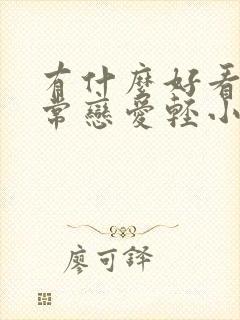 有什麼好看
常戀愛輕小
廖可鐸